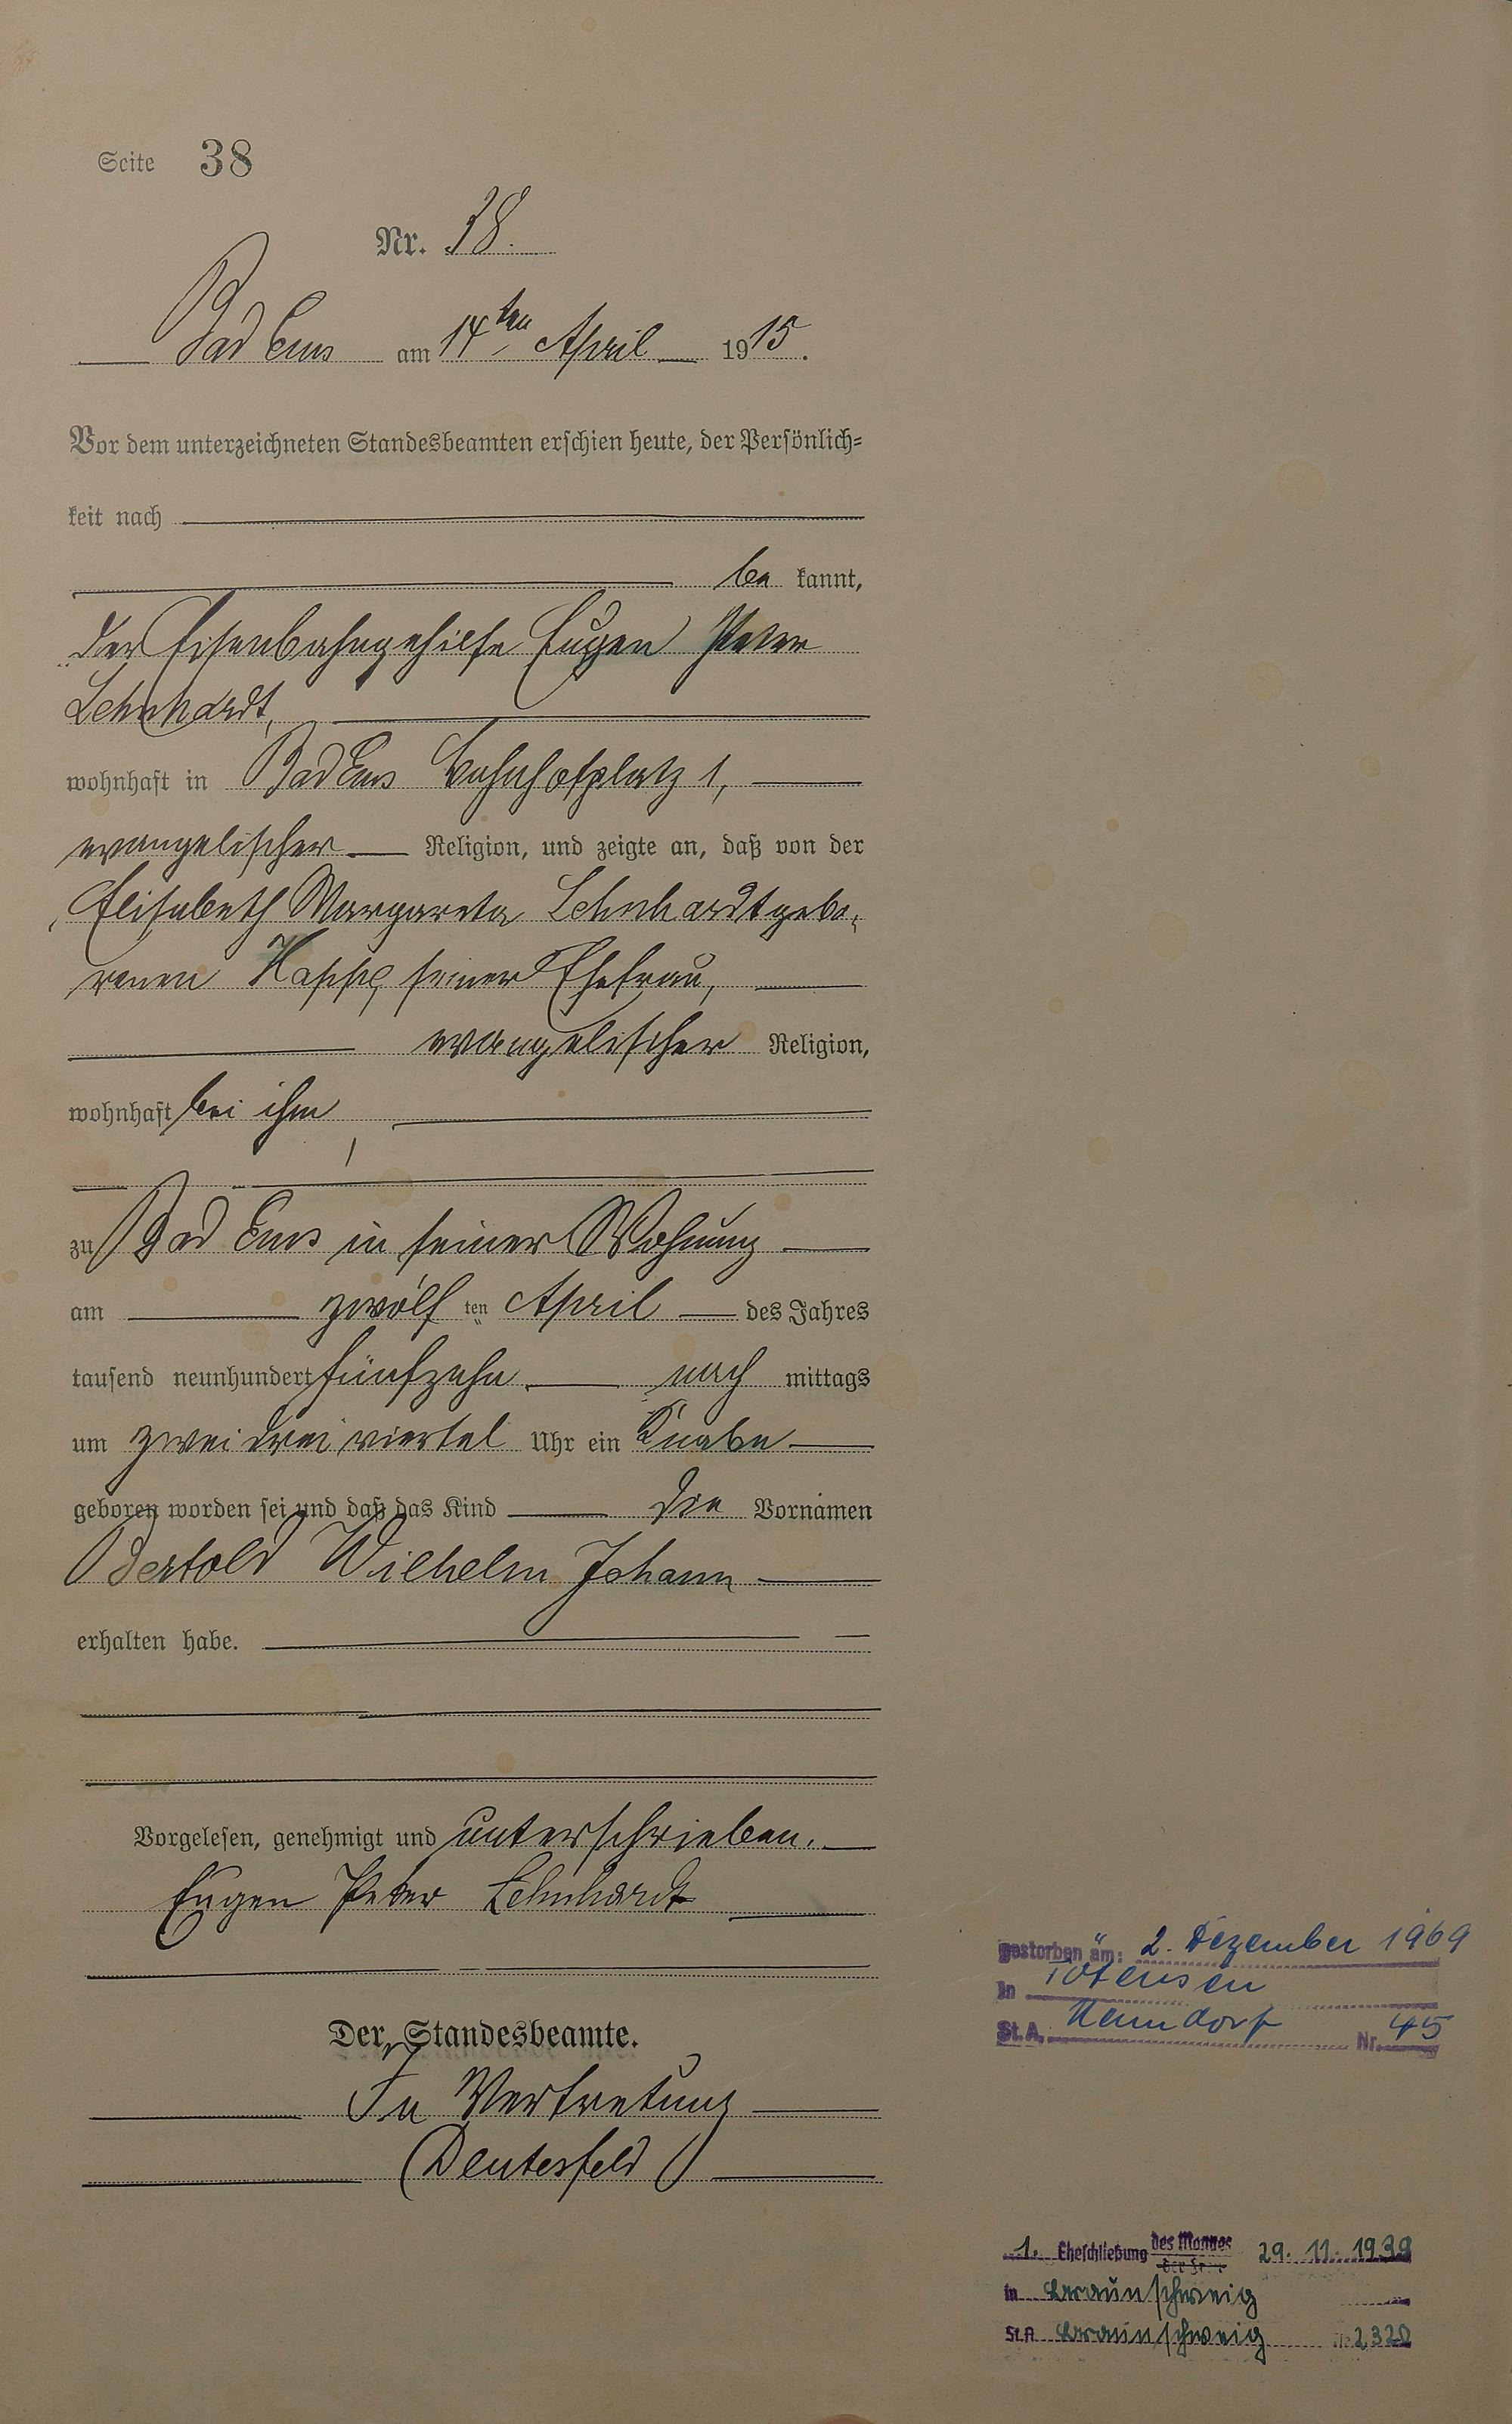 Seite 38
Nr. 38.
Bad Ems am 14ten April 1915.
Vor dem unterzeichneten Standesbeamten erschien heute, der Persönlich-
keit nach
be kannt,
der Eisenbahngehilfe Eugen Peter
Lehnhardt,
wohnhaft in Bad Ems Bahnhofplatz 1,
evangelischer Religion, und zeigte an, daß von der
Elisabeth Margareta Lehnhardt gebo-
renen Happ, seiner Ehefrau,
evangelischer Religion,
wohnhaft bei ihm,
zu Bad Ems in seiner Wohnung
am zwölf ten April des Jahres
tausend neunhundert fünfzehn nach mittags
um zwei drei viertel Uhr ein Knabe
geboren worden sei und daß das Kind die Vornamen
Bertold Wilhelm Johann
erhalten habe.
Vorgelesen, genehmigt und unterschrieben.
Eugen Peter Lehnhardt
Der Standesbeamte.
In Vertretung
(Deutesfeld)
gestorben am: 2. Dezember 1969
in Tötensen
St.A. Nenndorf Nr. 45
1. Eheschließung des Mannes 29. 11. 1939
der Frau
in Braunschweig
St.A. Braunschweig Nr. 2320